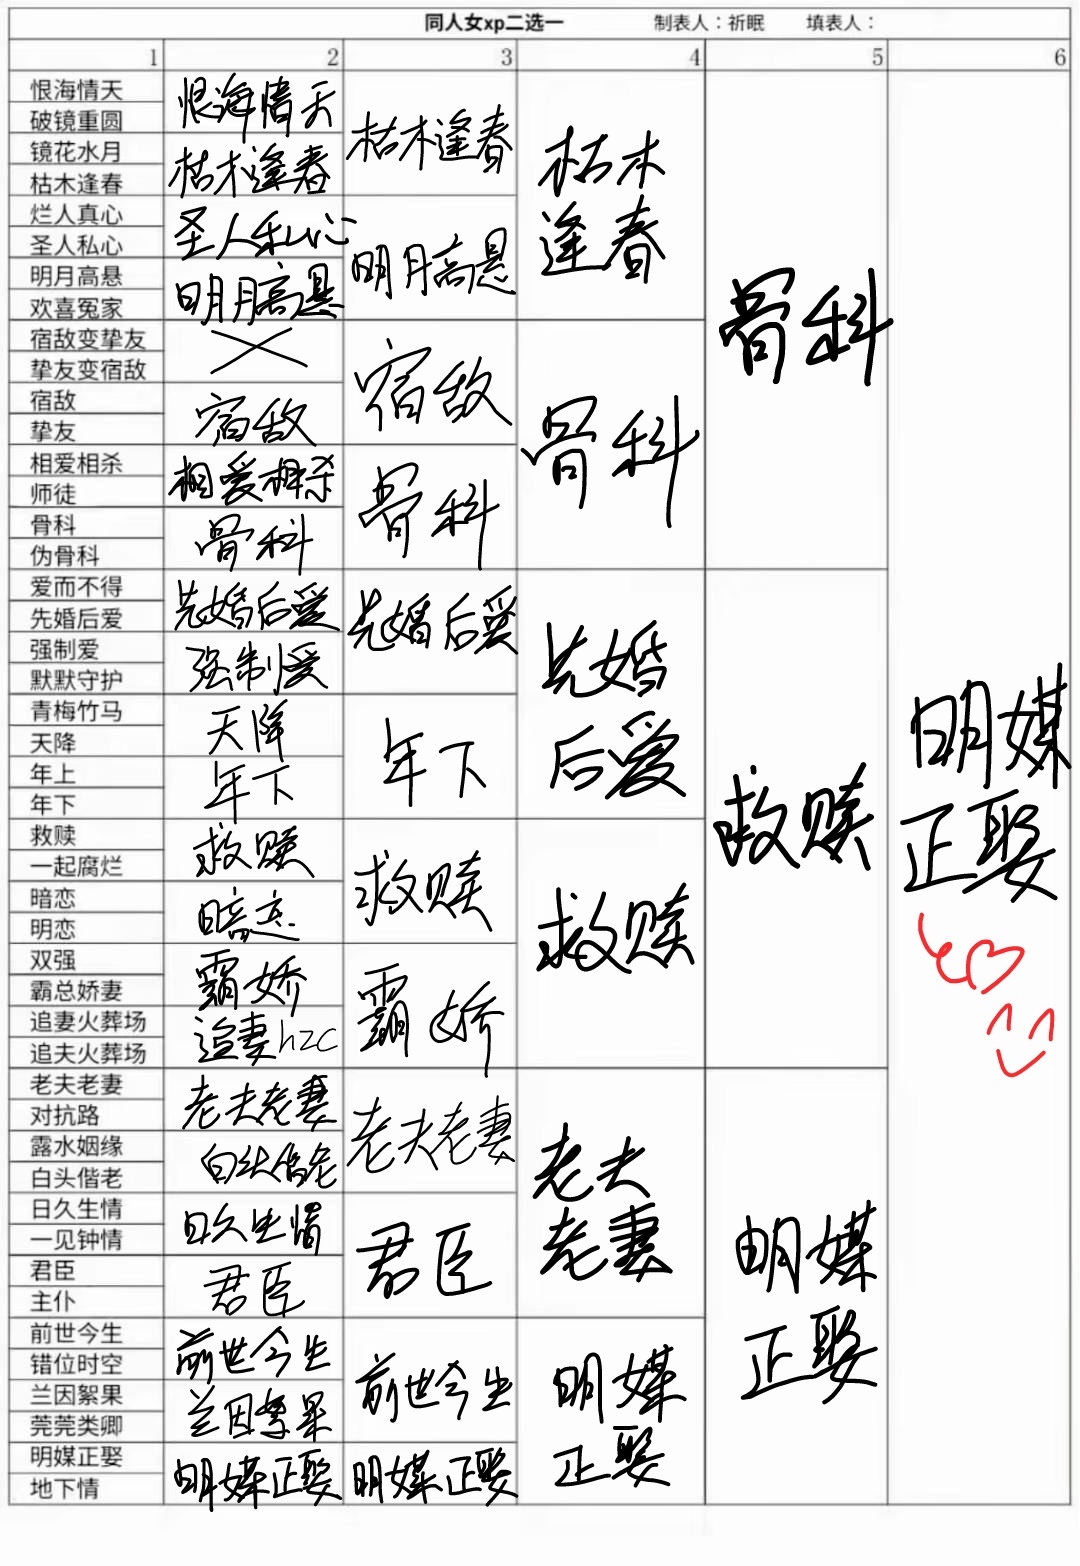 同人女xp二选一 制表人：祈眠 填表人：
1 2 3 4 5 6
恨海情天
破镜重圆
镜花水月
枯木逢春
烂人真心
圣人私心
明月高悬
欢喜冤家
宿敌变挚友
挚友变宿敌
宿敌
挚友
相爱相杀
师徒
骨科
伪骨科
爱而不得
先婚后爱
强制爱
默默守护
青梅竹马
天降
年上
年下
救赎
一起腐烂
暗恋
明恋
双强
霸总娇妻
追妻火葬场
追夫火葬场
老夫老妻
对抗路
露水姻缘
白头偕老
日久生情
一见钟情
君臣
主仆
前世今生
错位时空
兰因絮果
莞莞类卿
明媒正娶
地下情
恨海情天
枯木逢春
圣人私心
明月高悬
宿敌
相爱相杀
骨科
先婚后爱
强制爱
天降
年下
救赎
暗恋
霸娇
追妻hzc
老夫老妻
白头偕老
日久生情
君臣
前世今生
兰因絮果
明媒正娶
枯木逢春
明月高悬
宿敌
骨科
先婚后爱
年下
救赎
霸娇
老夫老妻
君臣
前世今生
明媒正娶
枯木
逢春
骨科
先婚
后爱
救赎
老夫
老妻
明媒
正娶
骨科
救赎
明媒
正娶
明媒
正娶